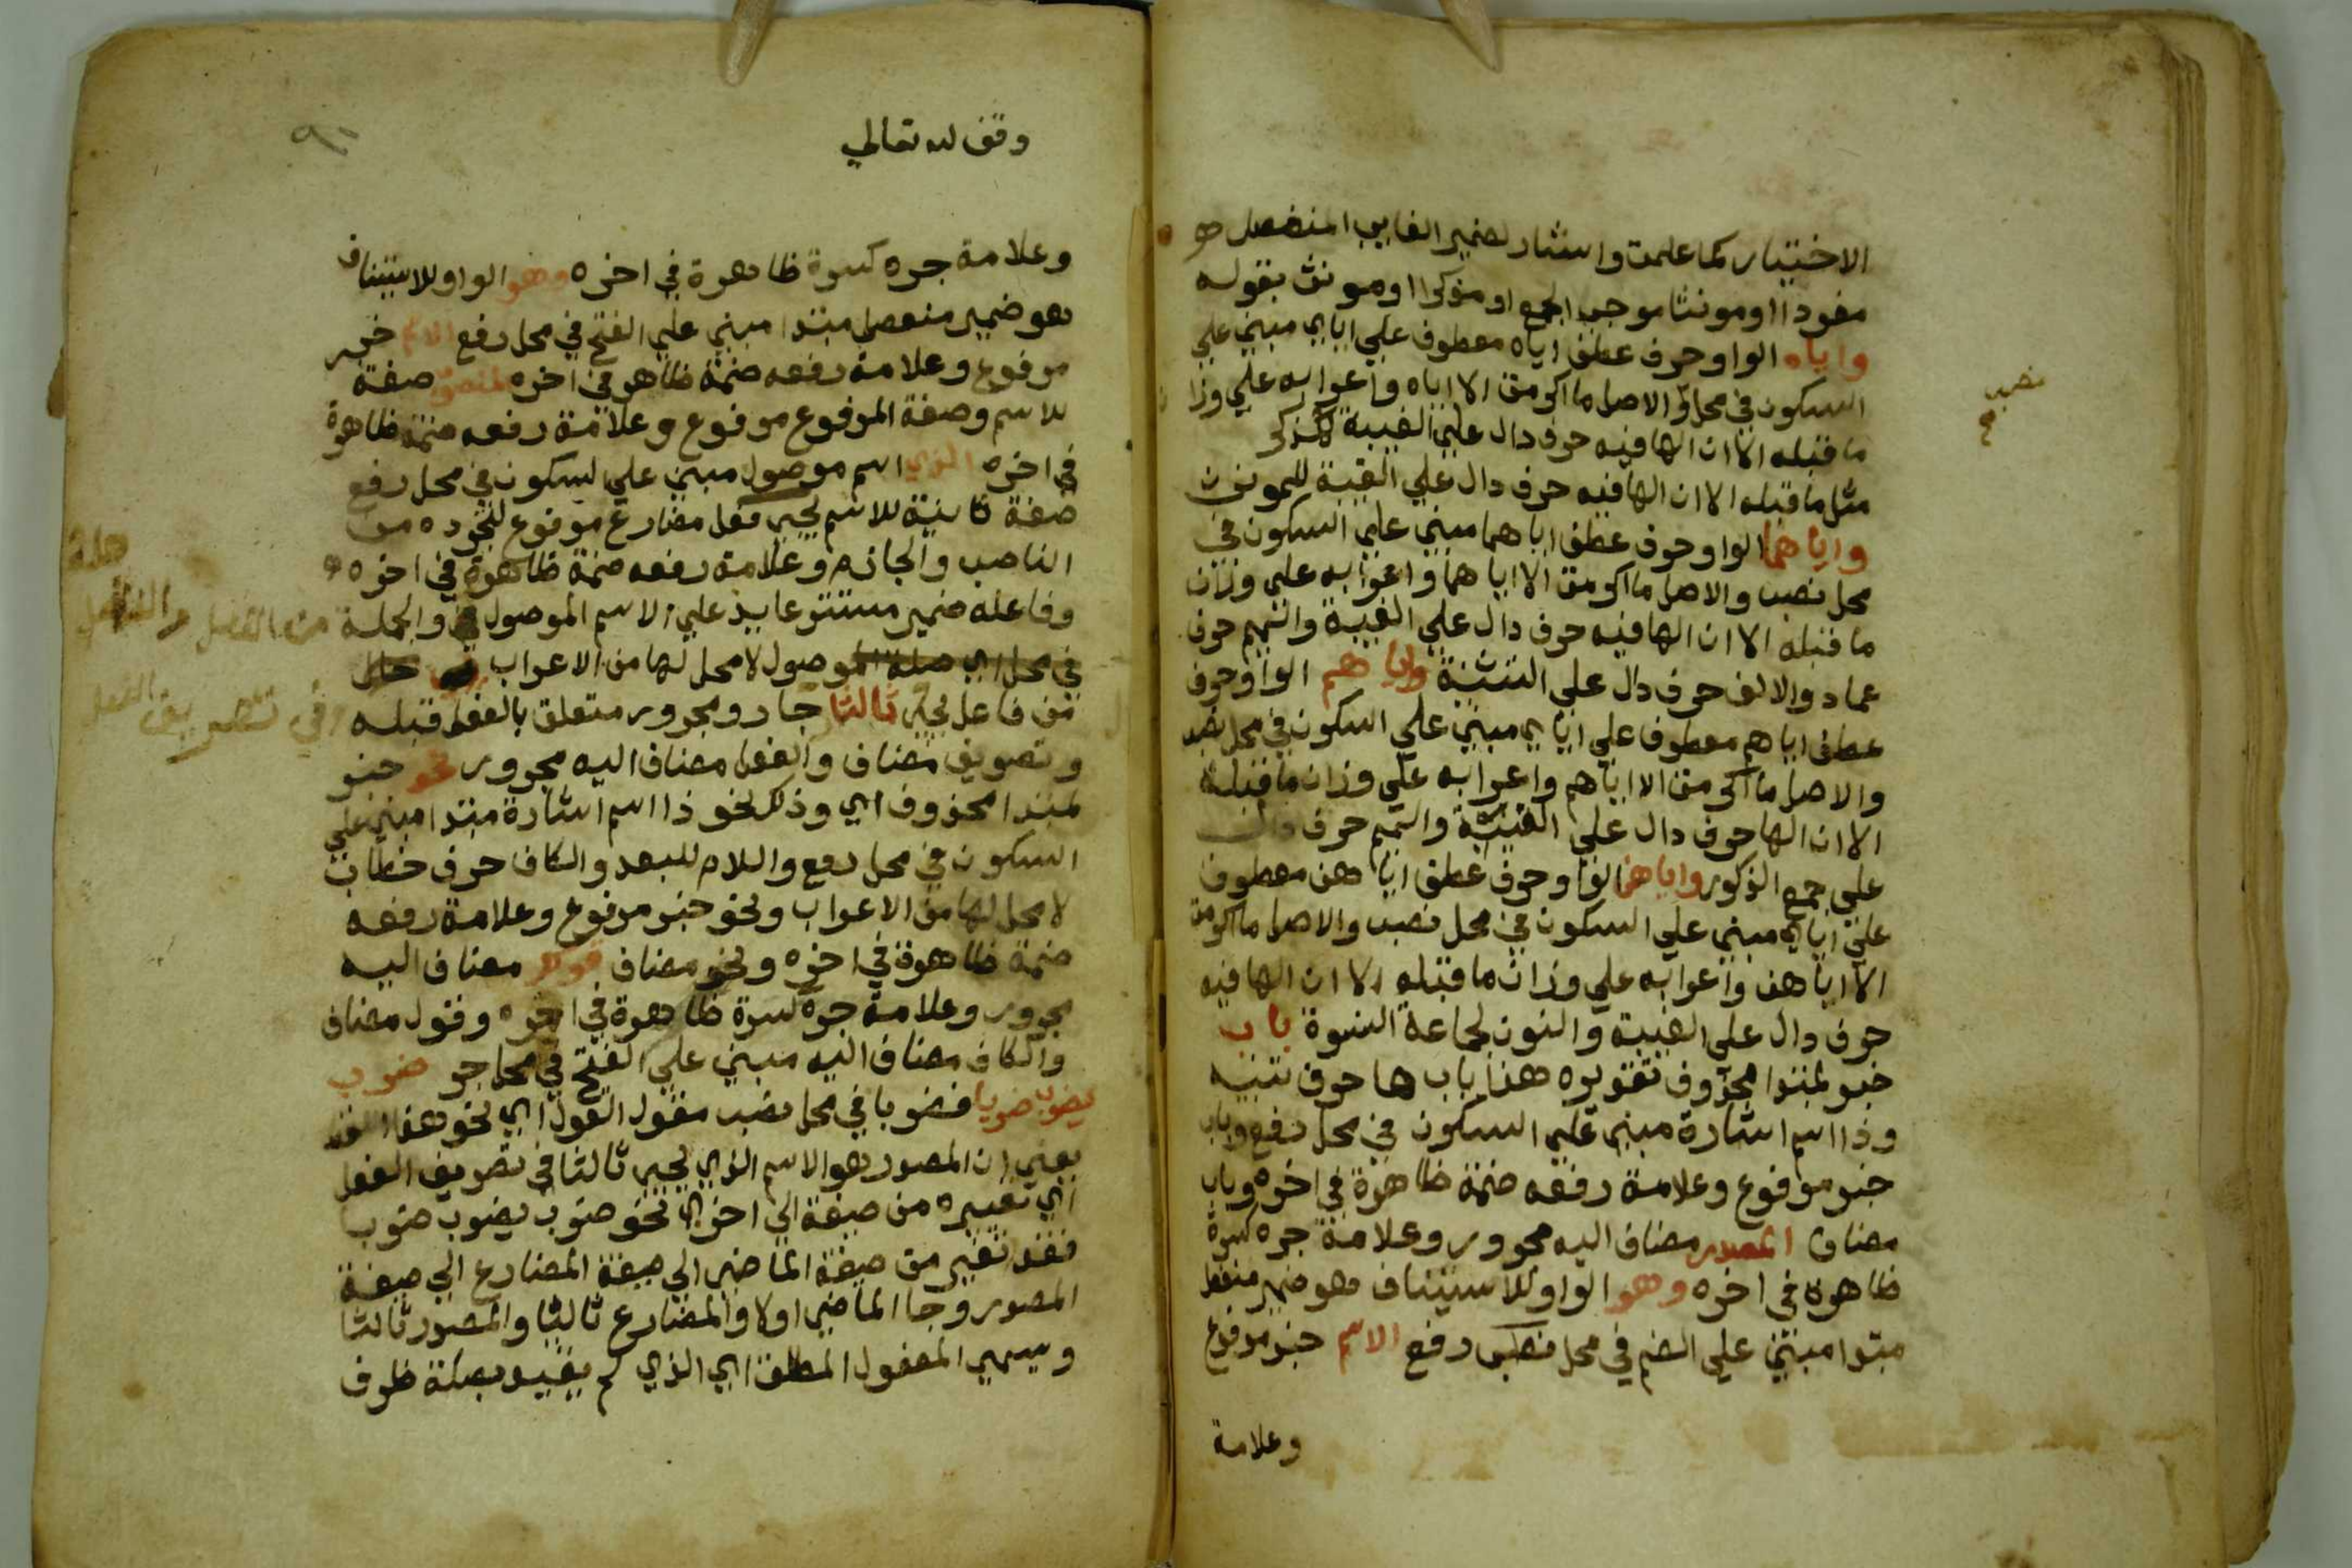 الاختيار كما علمت واشار لضمير الغايب المنفصل هو
مفردا او مونثا موجب الجمع او مذكرا او مونث بقوله
واياه الواو حرف عطف اياه معطوف علي اياي مبني علي
السكون في محل والاصل ما اكرمت الا اياه واعرابه علي وزا
نصب
صح
ما قبله الا ان الها فيه حرف دال علي الغيبة
مثل ما قبله الا ان الها فيه حرف دال علي الغيبة للمونث
واياهما الواو حرف عطف اياهما مبني علي السكون في
محل نصب والاصل ما اكرمت الا اياهما واعرابه علي وزان
ما قبله الا ان الها فيه حرف دال علي الغيبة والميم حرف
عماد والالف حرف دال علي التثنية واياهم الواو حرف
عطف اياهم معطوف علي اياي مبني علي السكون في محل نصب
والاصل ما اكرمت الا اياهم واعرابه علي وزان ما قبله
الا ان الها حرف دال علي الغيبة والميم حرف دال
علي جمع الذكور واياهن الواو حرف عطف اياهن معطوف
علي اياي مبني علي السكون في محل نصب والاصل ما اكرمت
الا اياهن واعرابه علي وزان ما قبله الا ان الها فيه
حرف دال علي الغيبة والنون لجماعة النسوة باب
خبر لمبتدا محذوف تقديره هذا باب ها حرف تنبيه
وذا اسم اشارة مبني علي السكون في محل رفع وباب
خبر مرفوع وعلامة رفعه ضمة ظاهرة في اخره وباب
مضاف المصدر مضاف اليه مجرور وعلامة جره كسرة
ظاهرة في اخره وهو الواو للاستيناف هو ضمير منفصل
مبتدا مبني علي الضم في محل رفع الاسم خبر مرفوع
وعلامة
وقف لله تعالي
٩٠
وعلامة جره كسرة ظاهرة في اخره وهو الواو للاستيناف
هو ضمير منفصل مبتدا مبني علي الفتح في محل رفع الاسم خبر
مرفوع وعلامة رفعه ضمة ظاهرة في اخره المنصوب صفة
للاسم وصفة المرفوع مرفوع وعلامة رفعه ضمة ظاهرة
في اخره الذي اسم موصول مبني علي السكون في محل رفع
صفة ثانية للاسم يجي فعل مضارع مرفوع لتجرده من
الناصب والجازم وعلامة رفعه ضمة ظاهرة في اخره
وفاعله ضمير مستتر عايد علي الاسم الموصول والجملة من الفعل والفاعل صلة
في محل اي صلة الموصول لا محل لها من الاعراب حال
من فاعل يجي ثالثا جار ومجرور متعلق بالفعل قبله في تصريف الفعل
وتصريف مضاف والفعل مضاف اليه مجرور نحو خبر
لمبتدا محذوف اي وذلك نحو ذا اسم اشارة مبتدا مبني علي
السكون في محل رفع واللام للبعد والكاف حرف خطاب
لا محل لها من الاعراب ونحو خبر مرفوع وعلامة رفعه
ضمة ظاهرة في اخره ونحو مضاف قولك مضاف اليه
مجرور وعلامة جره كسرة ظاهرة في اخره وقول مضاف
والكاف مضاف اليه مبني علي الفتح في محل جر ضرب
يضرب ضربا فضربا في محل نصب مقول القول اي نحو هذا
يعني ان المصدر هو الاسم الذي يجي ثالثا في تصريف الفعل
اي تغييره من صيغة الي اخري نحو ضرب يضرب ضرب
فقد تغير من صيغة الماضي الي صيغة المضارع الي صيغة
المصدر وجا الماضي اولا والمضارع ثانيا والمصدر ثالثا
ويسمي المفعول المطلق اي الذي لم يقيد بصلة ظرف